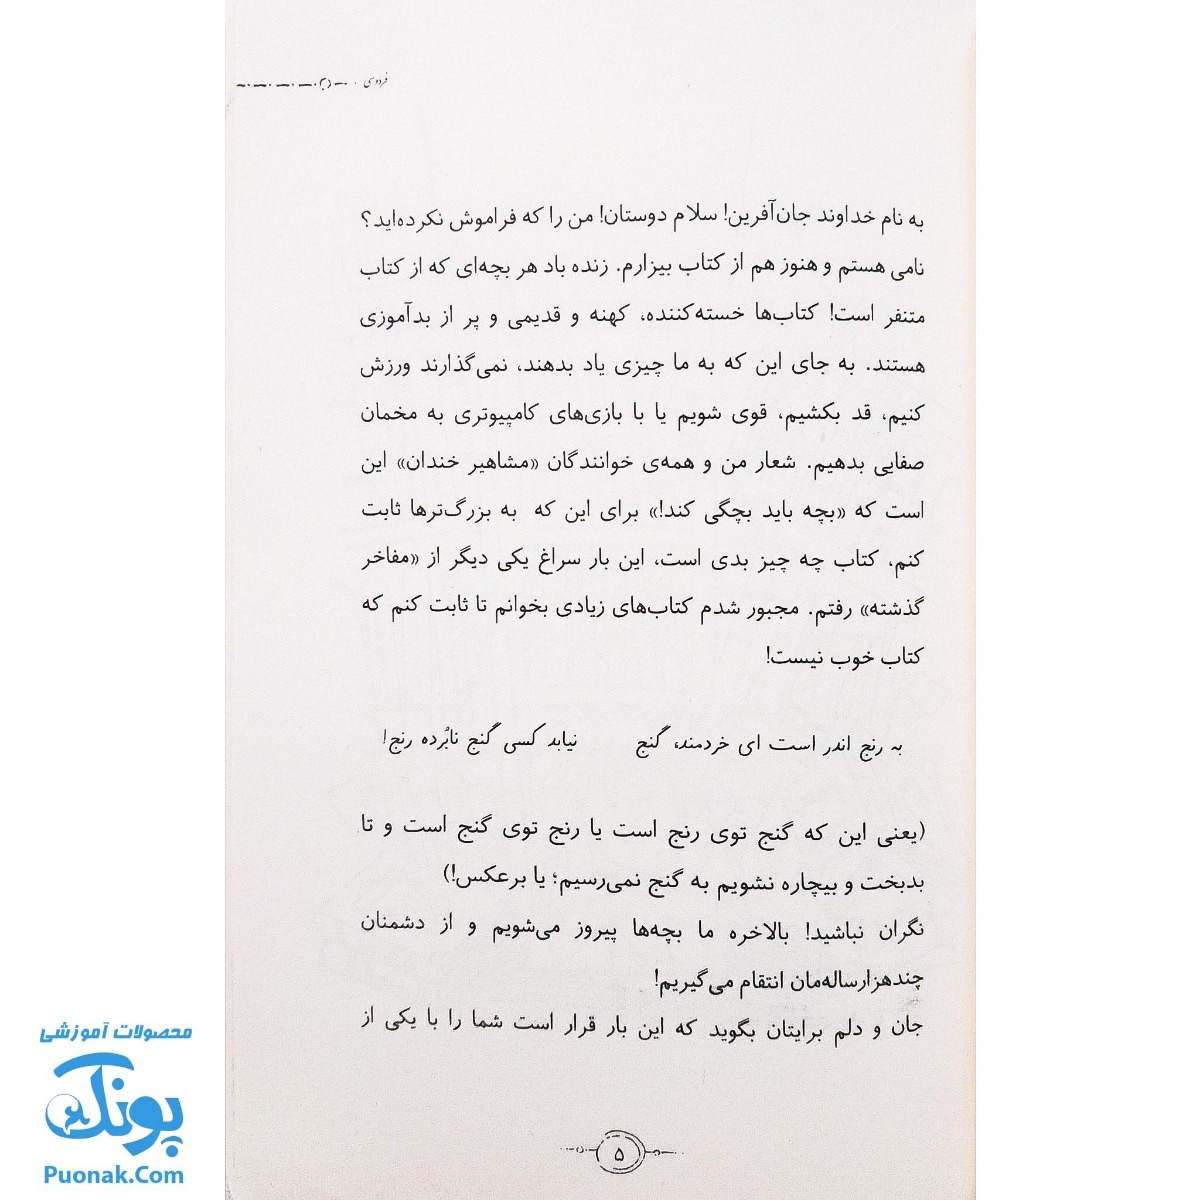 فردوسی
به نام خداوند جان‌آفرین! سلام دوستان! من را که فراموش نکرده‌اید؟
نامی هستم و هنوز هم از کتاب بیزارم. زنده باد هر بچه‌ای که از کتاب
متنفر است! کتاب‌ها خسته‌کننده، کهنه و قدیمی و پر از بدآموزی
هستند. به جای این که به ما چیزی یاد بدهند، نمی‌گذارند ورزش
کنیم، قد بکشیم، قوی شویم یا با بازی‌های کامپیوتری به مخمان
صفایی بدهیم. شعار من و همه‌ی خوانندگان «مشاهیر خندان» این
است که «بچه باید بچگی کند!» برای این که به بزرگ‌ترها ثابت
کنم، کتاب چه چیز بدی است، این بار سراغ یکی دیگر از «مفاخر
گذشته» رفتم. مجبور شدم کتاب‌های زیادی بخوانم تا ثابت کنم که
کتاب خوب نیست!
به رنج اندر است ای خردمند، گنج نیابد کسی گنج نابُرده رنج!
(یعنی این که گنج توی رنج است یا رنج توی گنج است و تا
بدبخت و بیچاره نشویم به گنج نمی‌رسیم؛ یا برعکس!)
نگران نباشید! بالاخره ما بچه‌ها پیروز می‌شویم و از دشمنان
چندهزارساله‌مان انتقام می‌گیریم!
جان و دلم برایتان بگوید که این بار قرار است شما را با یکی از
۵
محصولات آموزشی
پونک
Puonak.Com